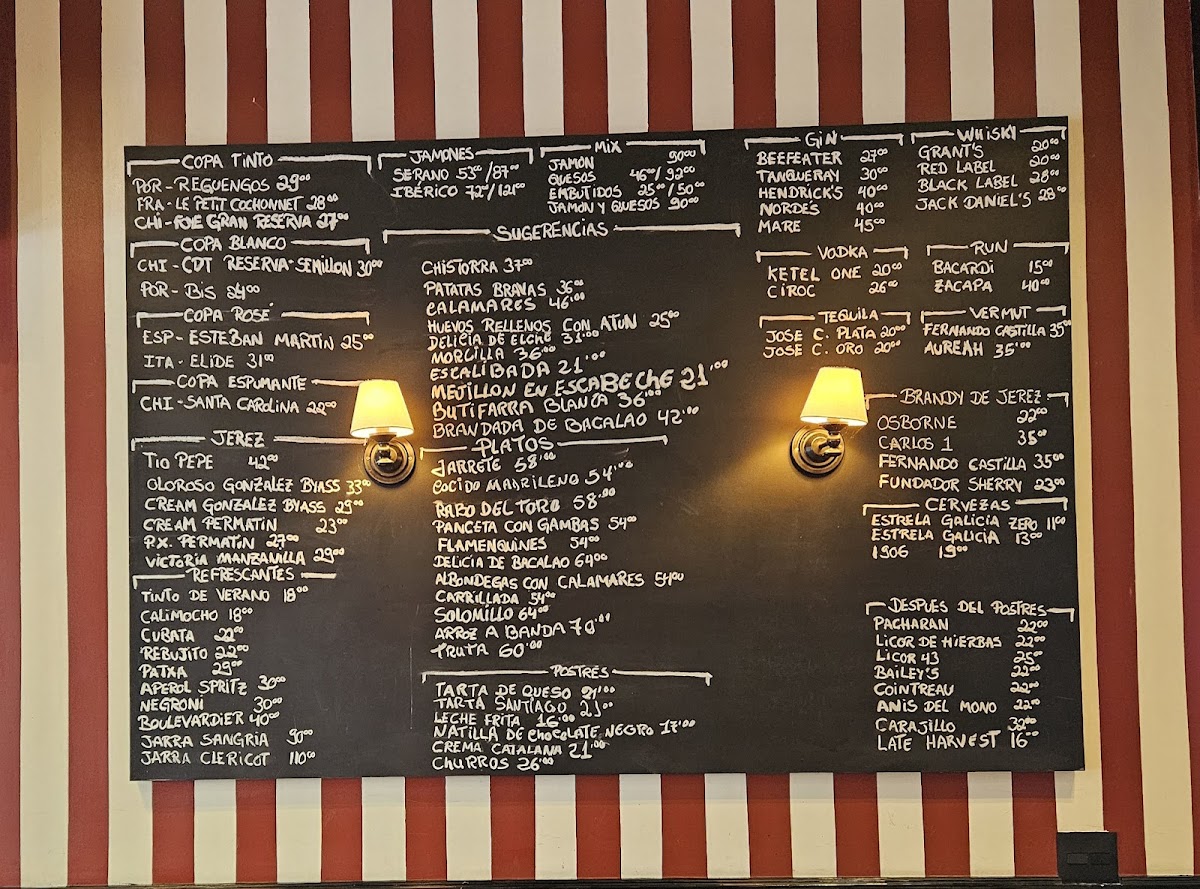 COPA TINTO
POR - REGUENGOS 29⁰⁰
FRA - LE PETIT COCHONNET 28⁰⁰
CHI - GRAN RESERVA 27⁰⁰
COPA BLANCO
CHI - CDT RESERVA - SEMILLON 30⁰⁰
POR - BIS 24⁰⁰
COPA ROSÉ
ESP - ESTEBAN MARTÍN 25⁰⁰
ITA - ELIDE 31⁰⁰
COPA ESPUMANTE
CHI - SANTA CAROLINA 22⁰⁰
JEREZ
TIO PEPE 42⁰⁰
OLOROSO GONZALEZ BYASS 33⁰⁰
CREAM GONZALEZ BYASS 29⁰⁰
CREAM PERMATIN 23⁰⁰
P.X. PERMATIN 27⁰⁰
VICTORIA MANZANILLA 29⁰⁰
REFRESCANTES
TINTO DE VERANO 18⁰⁰
CALIMOCHO 18⁰⁰
CUBATA 22⁰⁰
REBUJITO 22⁰⁰
PATXA 29⁰⁰
APEROL SPRITZ 30⁰⁰
NEGRONI 30⁰⁰
BOULEVARDIER 40⁰⁰
JARRA SANGRIA 90⁰⁰
JARRA CLERICOT 110⁰⁰
JAMONES
SERANO 53⁰⁰/87⁰⁰
IBÉRICO 72⁰⁰/121⁰⁰
MIX
JAMON 90⁰⁰
QUESOS 46⁰⁰/92⁰⁰
EMBUTIDOS 25⁰⁰/50⁰⁰
JAMON Y QUESOS 90⁰⁰
SUGERENCIAS
CHISTORRA 37⁰⁰
PATATAS BRAVAS 36⁰⁰
CALAMARES 46⁰⁰
HUEVOS RELLENOS CON ATUN 25⁰⁰
DELICIA DE ELCHE 31⁰⁰
MORCILLA 36⁰⁰
ESCALIBADA 21'⁰⁰
MEJILLON EN ESCABECHE 21'⁰⁰
BUTIFARRA BLANCA 36'⁰⁰
BRANDADA DE BACALAO 42'⁰⁰
PLATOS
JARRETE 58'⁰⁰
COCIDO MADRILENO 54'⁰⁰
RABO DEL TORO 58'⁰⁰
PANCETA CON GAMBAS 54⁰⁰
FLAMENQUINES 54⁰⁰
DELICIA DE BACALAO 64⁰⁰
ALBONDEGAS CON CALAMARES 54⁰⁰
CARRILLADA 54⁰⁰
SOLOMILLO 64⁰⁰
ARROZ A BANDA 70'⁰⁰
TRUTA 60'⁰⁰
POSTRES
TARTA DE QUESO 21'⁰⁰
TARTA SANTIAGO 21⁰⁰
LECHE FRITA 16'⁰⁰
NATILLA DE CHOCOLATE NEGRO 17'⁰⁰
CREMA CATALANA 21'⁰⁰
CHURROS 26'⁰⁰
GIN
BEEFEATER 27⁰⁰
TANQUERAY 30⁰⁰
HENDRICK'S 40⁰⁰
NORDES 40⁰⁰
MARE 45⁰⁰
WHISKY
GRANT'S 20⁰⁰
RED LABEL 20⁰⁰
BLACK LABEL 28⁰⁰
JACK DANIEL'S 28⁰⁰
VODKA
KETEL ONE 20⁰⁰
CIROC 26⁰⁰
RUN
BACARDI 15⁰⁰
ZACAPA 40⁰⁰
TEQUILA
JOSE C. PLATA 20⁰⁰
JOSE C. ORO 20⁰⁰
VERMUT
FERNANDO CASTILLA 35⁰⁰
AUREAH 35'⁰⁰
BRANDY DE JEREZ
OSBORNE 22⁰⁰
CARLOS 1 35⁰⁰
FERNANDO CASTILLA 35⁰⁰
FUNDADOR SHERRY 23⁰⁰
CERVEZAS
ESTRELA GALICIA ZERO 11⁰⁰
ESTRELA GALICIA 13⁰⁰
1906 19⁰⁰
DESPUES DEL POSTRES
PACHARAN 22⁰⁰
LICOR DE HIERBAS 22⁰⁰
LICOR 43 25⁰⁰
BAILEY'S 22⁰⁰
COINTREAU 22⁰⁰
ANIS DEL MONO 22⁰⁰
CARAJILLO 32⁰⁰
LATE HARVEST 16⁰⁰